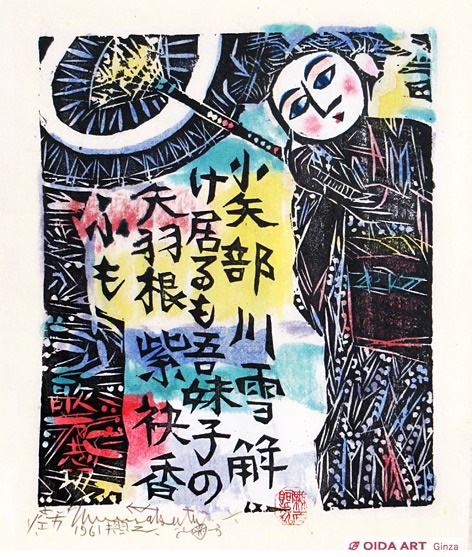 小矢部川雪解
け居るも吾妹子の
矢羽根紫袂香
ふも
1961
OIDA ART Ginza